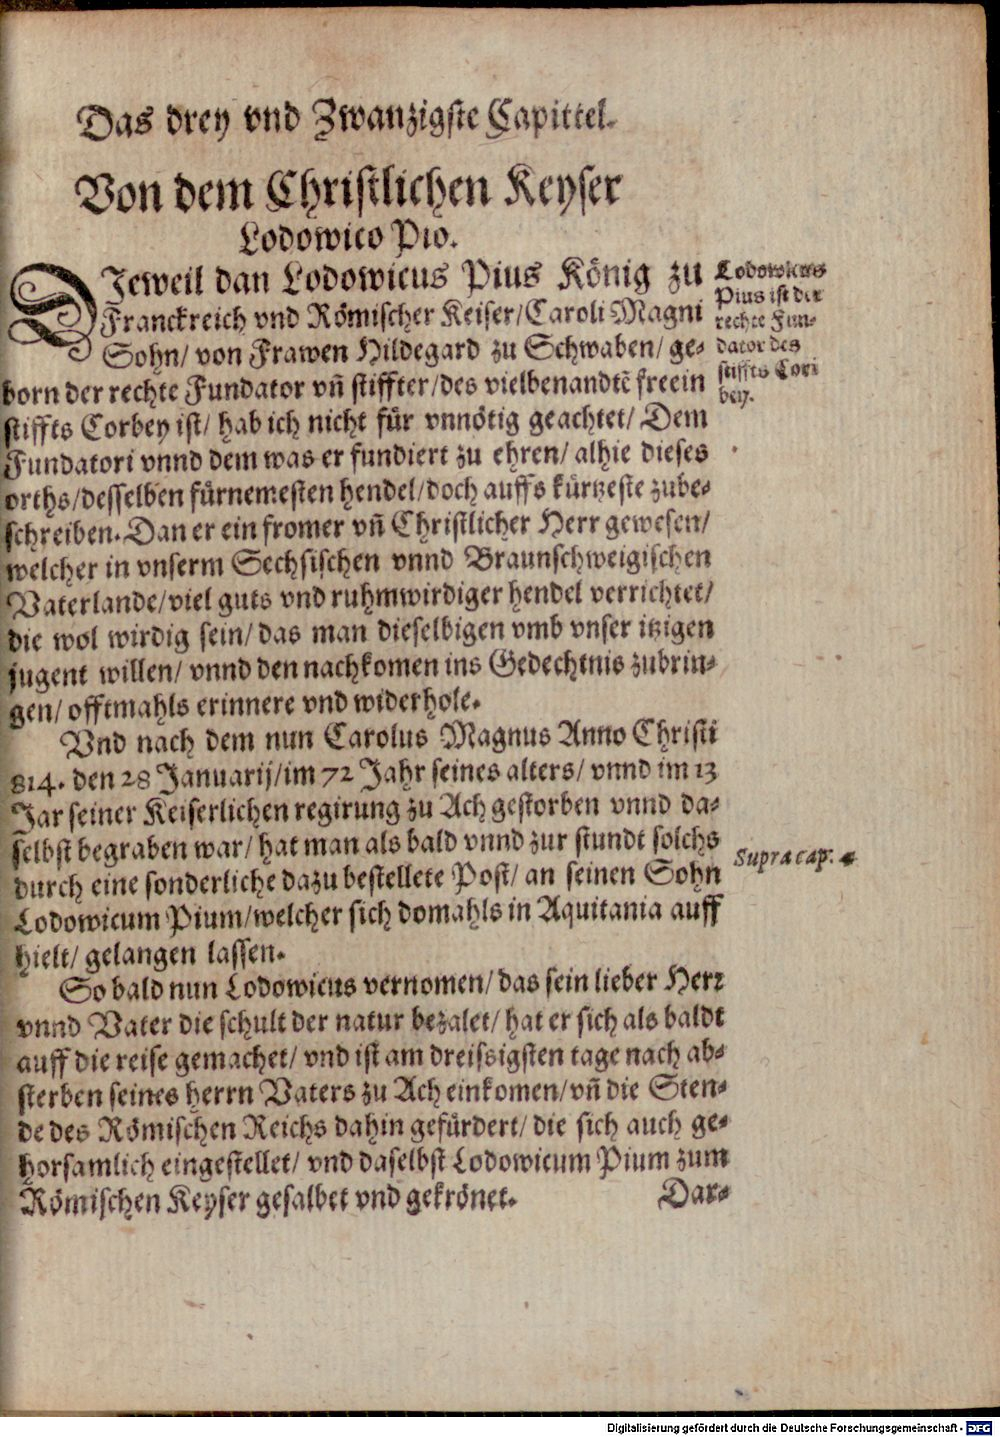 Das drey vnd Zwanzigste Capittel.
Von dem Christlichen Keyser
Lodowico Pio.
DJeweil dan Lodowicus Pius König zu
Franckreich vnd Römischer Keiser/Caroli Magni
Sohn/ von Frawen Hildegard zu Schwaben/ ge-
born der rechte Fundator vñ stiffter/des vielbenandtē freein
stiffts Corbey ist/ hab ich nicht für vnnötig geachtet/ Dem
Fundatori vnnd dem was er fundiert zu ehren/ alhie dieses
orths/desselben fürnemesten hendel/doch auffs kürtzeste zube-
schreiben. Dan er ein fromer vñ Christlicher Herr gewesen/
welcher in vnserm Sechsischen vnnd Braunschweigischen
Vaterlande/viel guts vnd ruhmwirdiger hendel verrichtet/
die wol wirdig sein/ das man dieselbigen vmb vnser itzigen
jugent willen/ vnnd den nachkomen ins Gedechtnis zubrin-
gen/ offtmahls erinnere vnd widerhole.
Lodowicus
Pius ist der
rechte Fun-
dator des
stiffts Cor
bey.
Vnd nach dem nun Carolus Magnus Anno Christi
814. den 28 Januarij/im 72 Jahr seines alters/ vnnd im 13
Jar seiner Keiserlichen regirung zu Ach gestorben vnnd da-
selbst begraben war/ hat man als bald vnnd zur stundt solchs
durch eine sonderliche dazu bestellete Post/ an seinen Sohn
Lodowicum Pium/welcher sich domahls in Aquitania auff
hielt/ gelangen lassen.
Supra cap. 4
So bald nun Lodowicus vernomen/ das sein lieber Herr
vnnd Vater die schult der natur bezalet/ hat er sich als baldt
auff die reise gemachet/ vnd ist am dreissigsten tage nach ab-
sterben seines herrn Vaters zu Ach einkomen/ vñ die Sten-
de des Römischen Reichs dahin gefürdert/ die sich auch ge-
horsamlich eingestellet/ vnd daselbst Lodowicum Pium zum
Römischen Keyser gesalbet vnd gekrönet.
Dar-
Digitalisierung gefördert durch die Deutsche Forschungsgemeinschaft - DFG